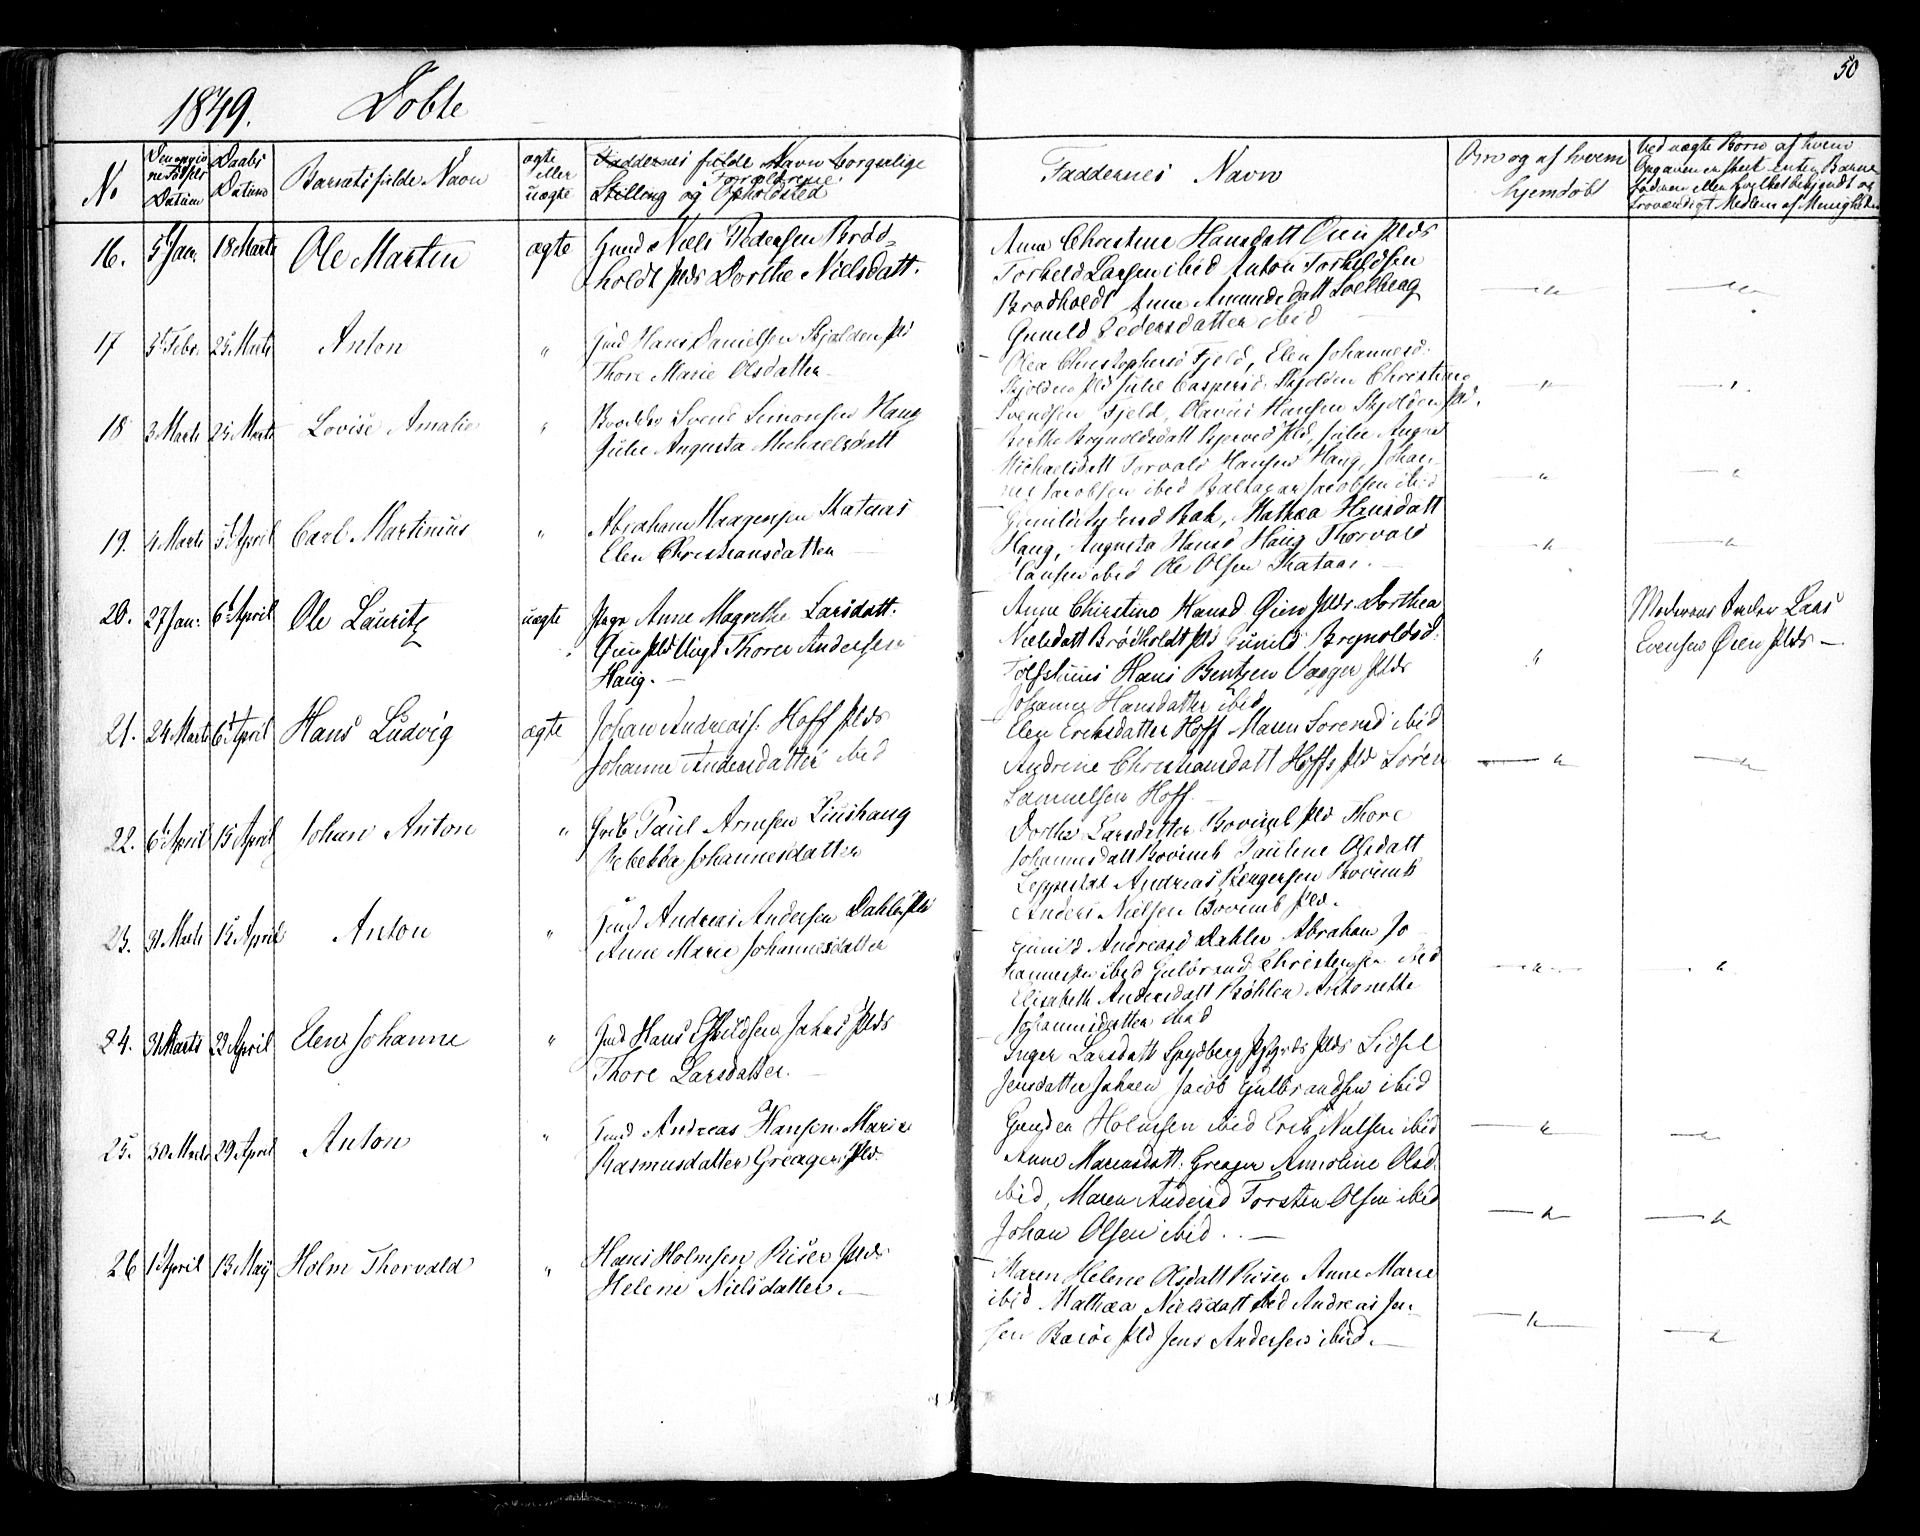 50
1849. Døbte
No
Datum
Daabs Datum
Barnets fulde Navn
ægte eller uægte
Faddernes fulde Navn borgerlige
Forældrene
Stilling og Opholdsted
Faddernes Navn
Om og af hvem
hjemdøbt
Ved uægte Børn af hvem
Opgaven er skeet enten Barne
faderen eller
troværdigt Medlem af Menigheden
16. 5 Jan. 18 Marts Ole Martin ægte Gmd Niels Pedersen Brød
holdt Plds Dorthe Nielsdatt.
Anne Christine Hansdatt Øren Plds
Torkeld Larsen ibid Anton Torkeldsen
Brødholdt Anne Amundsdatt Solberg
Gunild Pedersdatter ibid
17 5 Febr. 25 Marts Anton " Gmd Hans Danielsen Skjolden Pld
Thore Marie Olsdatter
Olea Christophersd Fjeld, Elen Johannesd.
Skjolden Pld Julie Caspersd. Skjolden Christine
Svendsen Fjeld, Olavus Hansen Skjolden Pld.
18 3 Marts 25 Marts Lovise Amalie " Svend Simonsen Haug
Julie Augusta Michaelsdatt
Berthe Brynoldsdatt Pld, Julie August
Michaelsdatt Torvald Hansen Haug, Johan
nes Jacobsen ibid Baltazar Jacobsen ibid
19. 4 Marts 5 April Carl Martinius " Abraham Haagensen Kataas
Elen Christiansdatter
Gunild Bak, Mathea Hansdatt
Haug, Augusta Hansd Haug Thorvald
Hansen ibid Ole Olsen Kataas.
20. 27 Jan: 6 April Ole Lauritz uægte Pige Anne Magrethe Larsdatt.
Øren Pld Ungk Thorer Andersen
Haug.
Anne Christine Hansd Øren Plds Dorthea
Nielsdatt Brødholdt Pld Gunild Brynoldsd:
Hans Bentzen Vager Plds
Johanne Hansdatter ibid
Moderens Fader Lars
Evensen Øren Plds
21. 24 Marts 6 April Hans Ludvig ægte Johan Andreas. Hoff Plds
Johanne Andersdatter ibid
Elen Eriksdatter Hoff Maren Sorensd ibid
Andrine Christiansdatt Hoffs Pld Søren
Samuelsen Hoff.
22. 6 April 15 April Johan Anton " Paul Arnesen Linshaug
Rebekka Johannesdatter
Dorthe Larsdatter Bovimb Pld Thore
Johannesdatt Bovimb Pauline Olsdatt
Leppestal Andreas Bovimb
Anders Nielsen Bovimb Pld.
23. 31 Marts 15 April Anton " Gmd Andreas Andersen Dahler Pld
Anne Marie Johannesdatter
Gunild Andreasd Dahler Abraham Jo
hannesen ibid Gulbrand Christensen ibid
Elisabeth Andersdatt Bøhler Antonette
Johannesdatter ibid
24. 31 Marts 22 April Elene Johanne " Gmd Hans Eskildsen Jahns Plds
Thore Larsdatter.
Inger Larsdatt Spydberg Plds Sidsel
Jensdatter Jahren Jacob Gulbrandsen ibid
Gunder Holmsen ibid Erik Nielsen ibid
25. 30 Marts 29 April Anton " Gmd Andreas Hansen. Marie
Rasmusdatter Greager Pld.
Anne Mariusdatt. Greager Annoline Olsd.
ibid, Maren Andersd Torsten Olsen ibid
Johan Olsen ibid.
26 1 April 13 Maij Holm Thorvald " Hans Holmsen Riser Plds
Helene Nielsdatter.
Maren Helene Olsdatt Riser Anne Marie
ibid Mathæa Nielsdatt Andreas Jen
sen Pld Jens Andersen ibid.